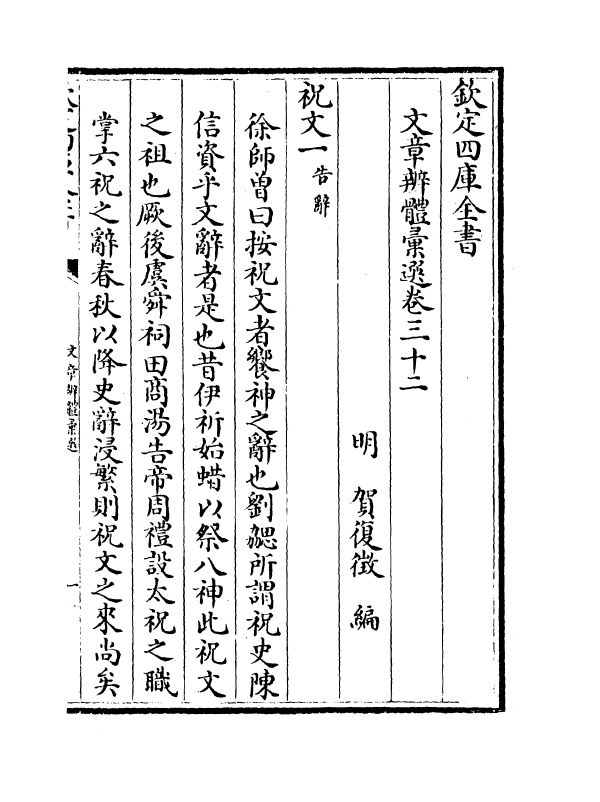 欽定四庫全書
文章辨體彙選卷三十二
明　賀復徵　編
祝文一 告辭
徐師曽曰按祝文者饗神之辭也劉勰所謂祝史陳
信資乎文辭者是也昔伊祈始蜡以祭八神此祝文
之祖也厥後虞舜祠田商湯告帝周禮設太祝之職
掌六祝之辭春秋以降史辭浸繁則祝文之來尚矣
文章辨體彙選
一